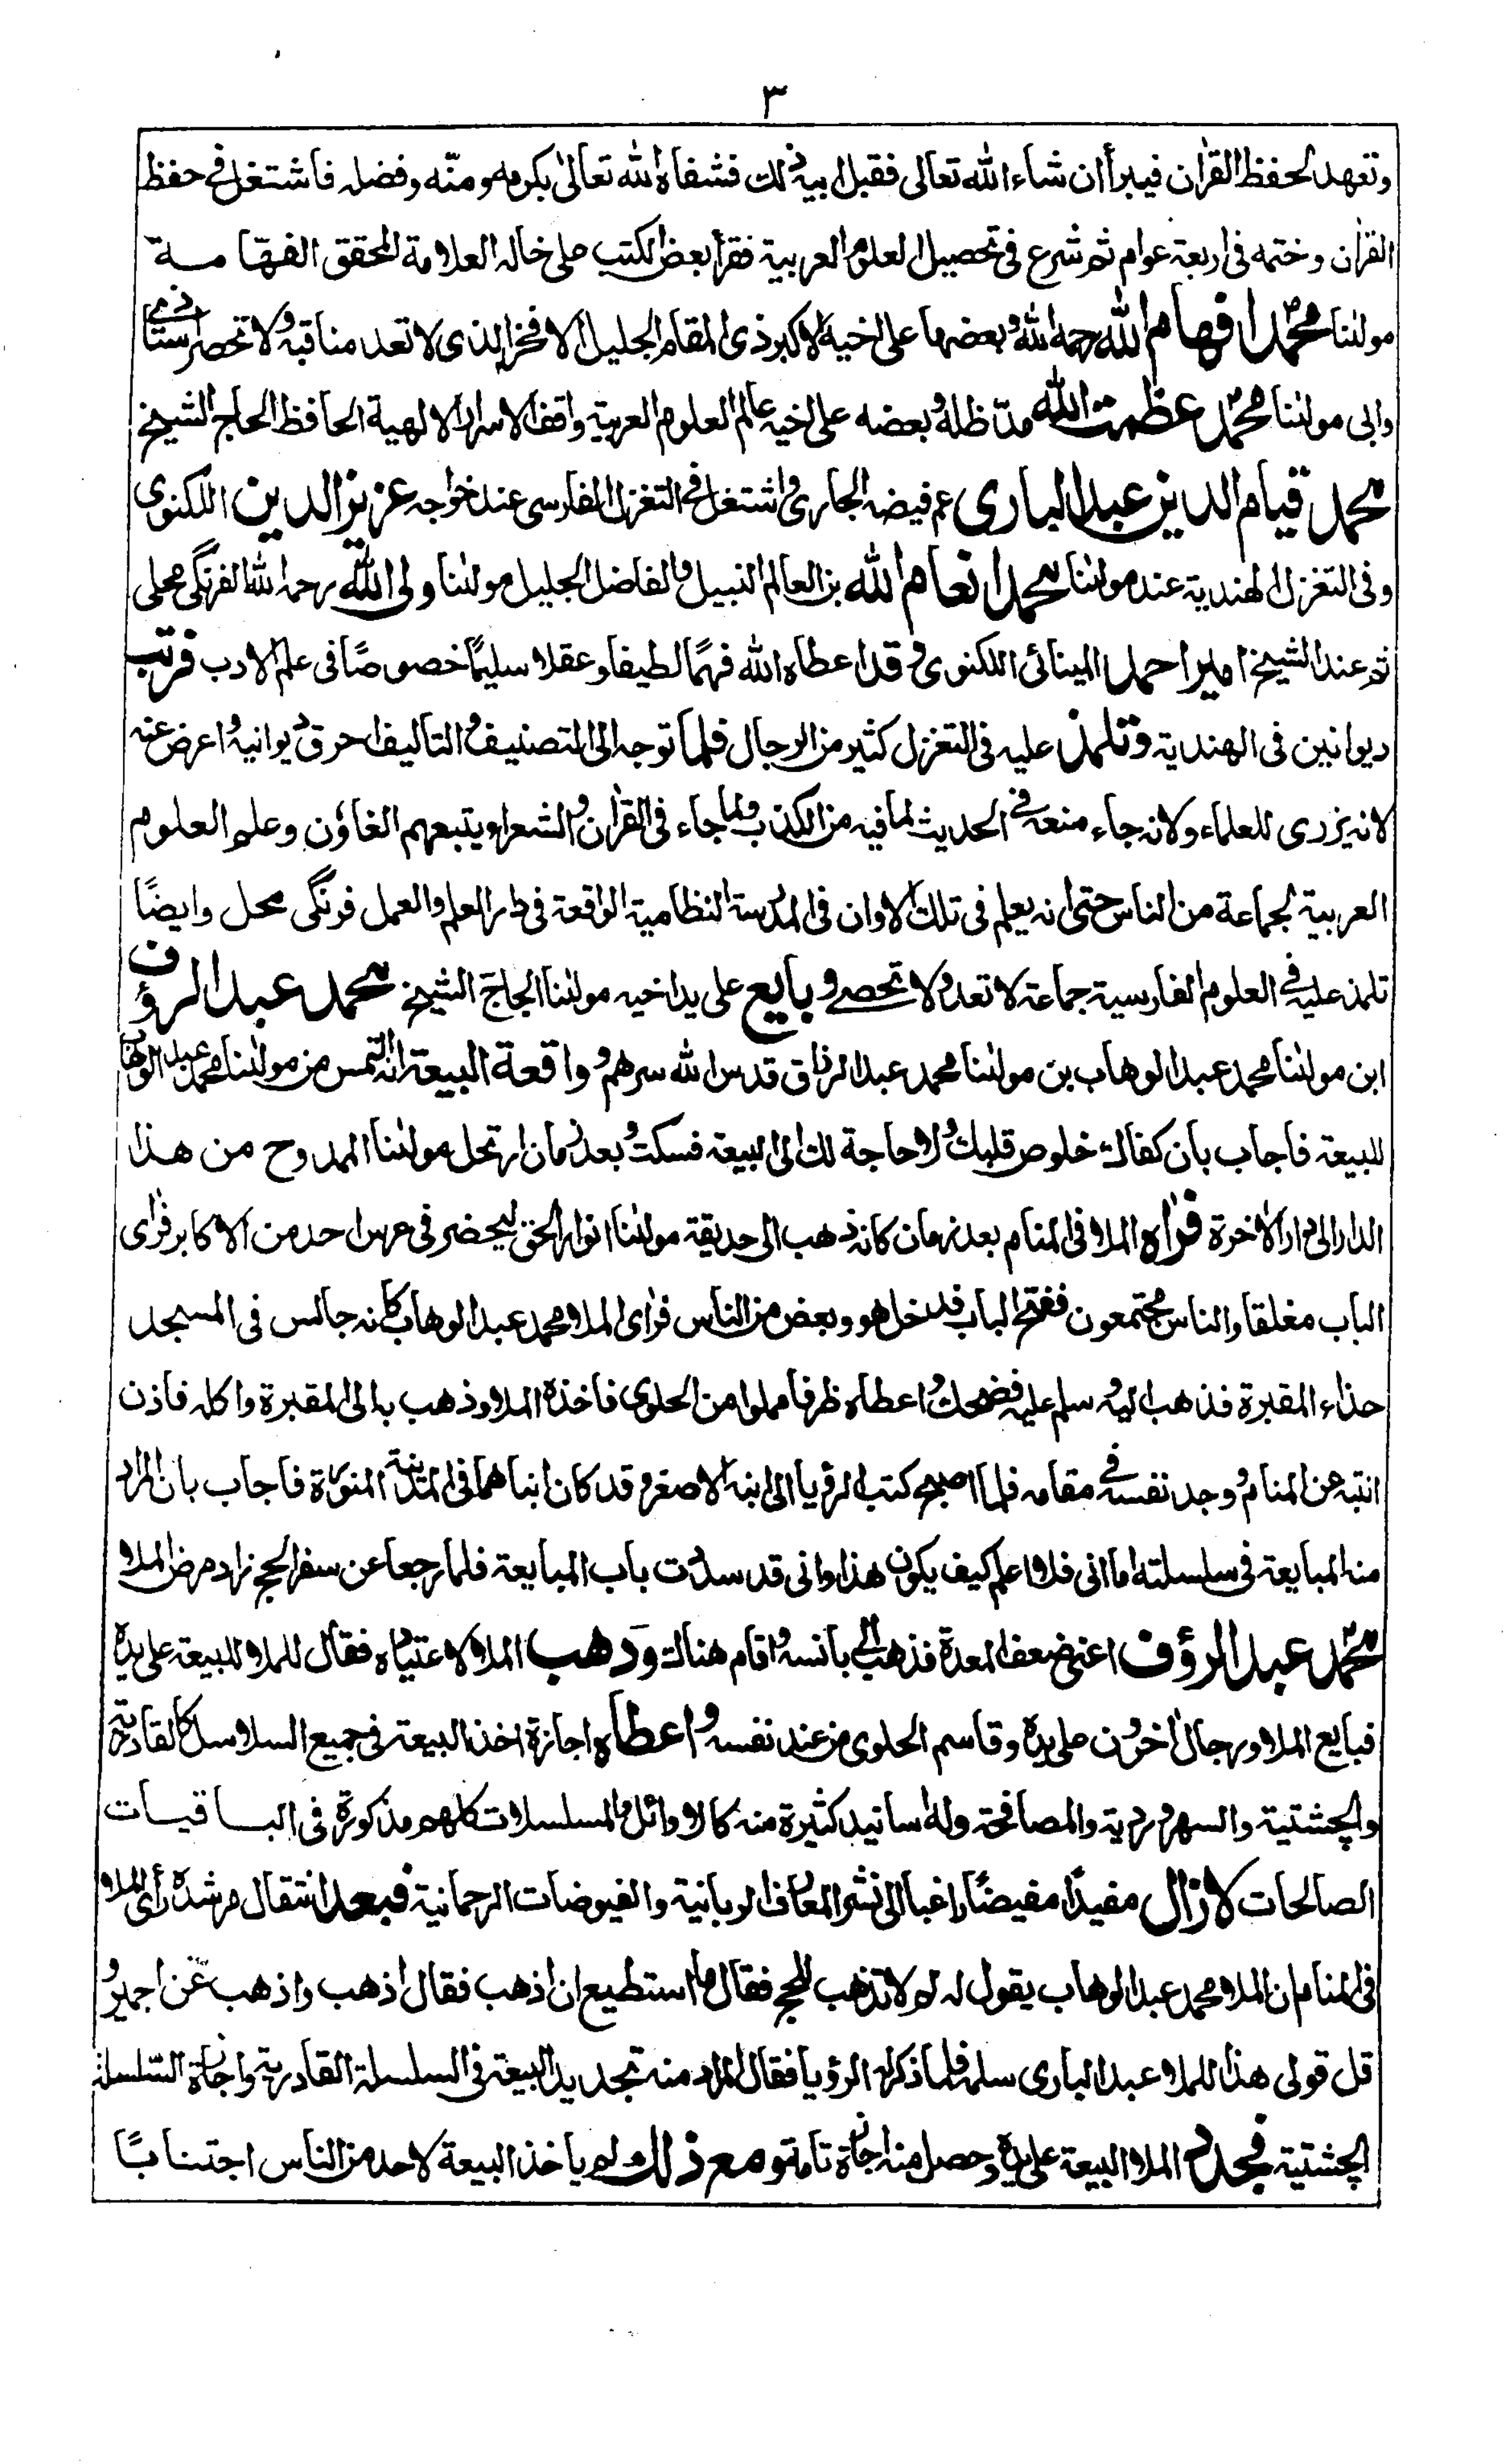 ٣
وتعهد لحفظ القرآن فيبرأ ان شاء الله تعالى فقبل ابيه ذلك فشفاه الله تعالىٰ بكرمه ومنّه وفضله فاشتغل فى حفظ
القرآن وختمه فى اربعة عوام ثم شرع فى تحصيل العلوم العربية فقرأ بعض الكتب على خاله العلامة المحقق الفهامة
مولٰنا محمد افهام الله رحمه الله وبعضها على اخيه الاكبر ذى المقام الجليل الافخر الذى لا تعد مناقبه ولا تحصر استاذى
وابى مولٰنا محمد عظمت الله مدّ ظله وبعضه على اخيه عالم العلوم العربية واقف الاسرار الالهية الحافظ الحاج الشيخ
محمد قيام الدين عبد البارى عم فيضه الجارى واشتغل فى التغزل الفارسى عند خواجه عزيز الدين اللكنوى
وفى التغزل الهندية عند مولٰنا محمد انعام الله بن العالم النبيل والفاضل الجليل مولٰنا ولى الله رحمه الله الفرنگى محلى
ثم عند الشيخ امير احمد المينائى اللكنوى وقد اعطاه الله فهمًا لطيفا وعقلا سليمًا خصوصًا فى علم الادب فرتب
ديوانين فى الهندية وتلمذ عليه فى التغزل كثير من الرجال فلما توجه الى التصنيف والتاليف احرق ديوانيه واعرض عنه
لانه يزرى للعلماء ولانه جاء منعه فى الحديث لما فيه من الكذب ولما جاء فى القرآن والشعراء يتبعهم الغاوٗن وعلم العلوم
العربية لجماعة من الناس حتى انه يعلم فى تلك الاوان فى المدرسة النظامية الواقعة فى دار العلم والعمل فرنگى محل وايضًا
تلمذ عليه فى العلوم الفارسية جماعة لا تعد ولا تحصى وبايع على يد اخيه مولٰنا الحاج الشيخ محمد عبد الرؤف
ابن مولٰنا محمد عبد الوهاب بن مولٰنا محمد عبد الرزاق قدس الله سرهم وواقعة البيعة انه التمس من مولٰنا محمد عبد الوهاب
للبيعة فاجاب بان كفاك خلوص قلبك ولا حاجة لك الى البيعة فسكت وبعد زمان ارتحل مولٰنا الممدوح من هذا
الدار الى دار الاٰخرة فرٰاه الملا فى المنام بعد زمان كانه ذهب الى حديقة مولٰنا انوار الحق ليحضر فى عرس احد من الاكابر فرٰاى
الباب مغلقا والناس مجتمعون ففتح الباب فدخل هو وبعض من الناس فرٰاى الملا محمد عبد الوهاب كانه جالس فى المسجد
حذاء المقبرة فذهب اليه وسلم عليه فضحك واعطاه ظرفا مملوا من الحلوى فاخذه الملا وذهب بالى المقبرة واكله فاذن
انتبه عن المنام ووجد نفسه فى مقامه فلما اصبح كتب الرؤيا الى ابنه الاصغر وقد كان ابناهما فى المدينة المنورة فاجاب بان المراد
منه المبايعة فى سلسلته اما انى فلا اعلم كيف يكون هذا وانى قد سددت باب المبايعة فلما رجعا عن سفر الحج زاد مرض الملا
محمد عبد الرؤف اعنى ضعف المعدة فذهب الى بانسه واقام هناك وذهب الملا لاعتياده فقال للملا للبيعة على يده
فبايع الملا ورجال اٰخرون على يده وقاسم الحلوى من عند نفسه واعطاه اجازة اخذ البيعة فى جميع السلاسل كالقادرية
والچشتية والسهروردية والمصافحة وله اسانيد كثيرة منه كالاوائل والمسلسلات كلهم مذكورة فى الباقيات
الصالحات لازال مفيدًا مفيضًا راغبا الى نشر المعارف الربانية والفيوضات الرحمانية فبعد انتقال مرشده رأى الملا
فى المنام ان الملا محمد عبد الوهاب يقول له لم لا تذهب للحج فقال ما استطيع ان اذهب فقال اذهب واذهب عن اجمير و
قل قولى هذا للملا عبد البارى سلمه فلما ذكر له الرؤيا فقال المراد منه تجديد البيعة فى السلسلة القادرية واجازة السلسلة
الچشتية فجدد الملا البيعة على يده وحصل منه اجازة تامة ومع ذلك لم ياخذ البيعة لاحد من الناس اجتنابًا